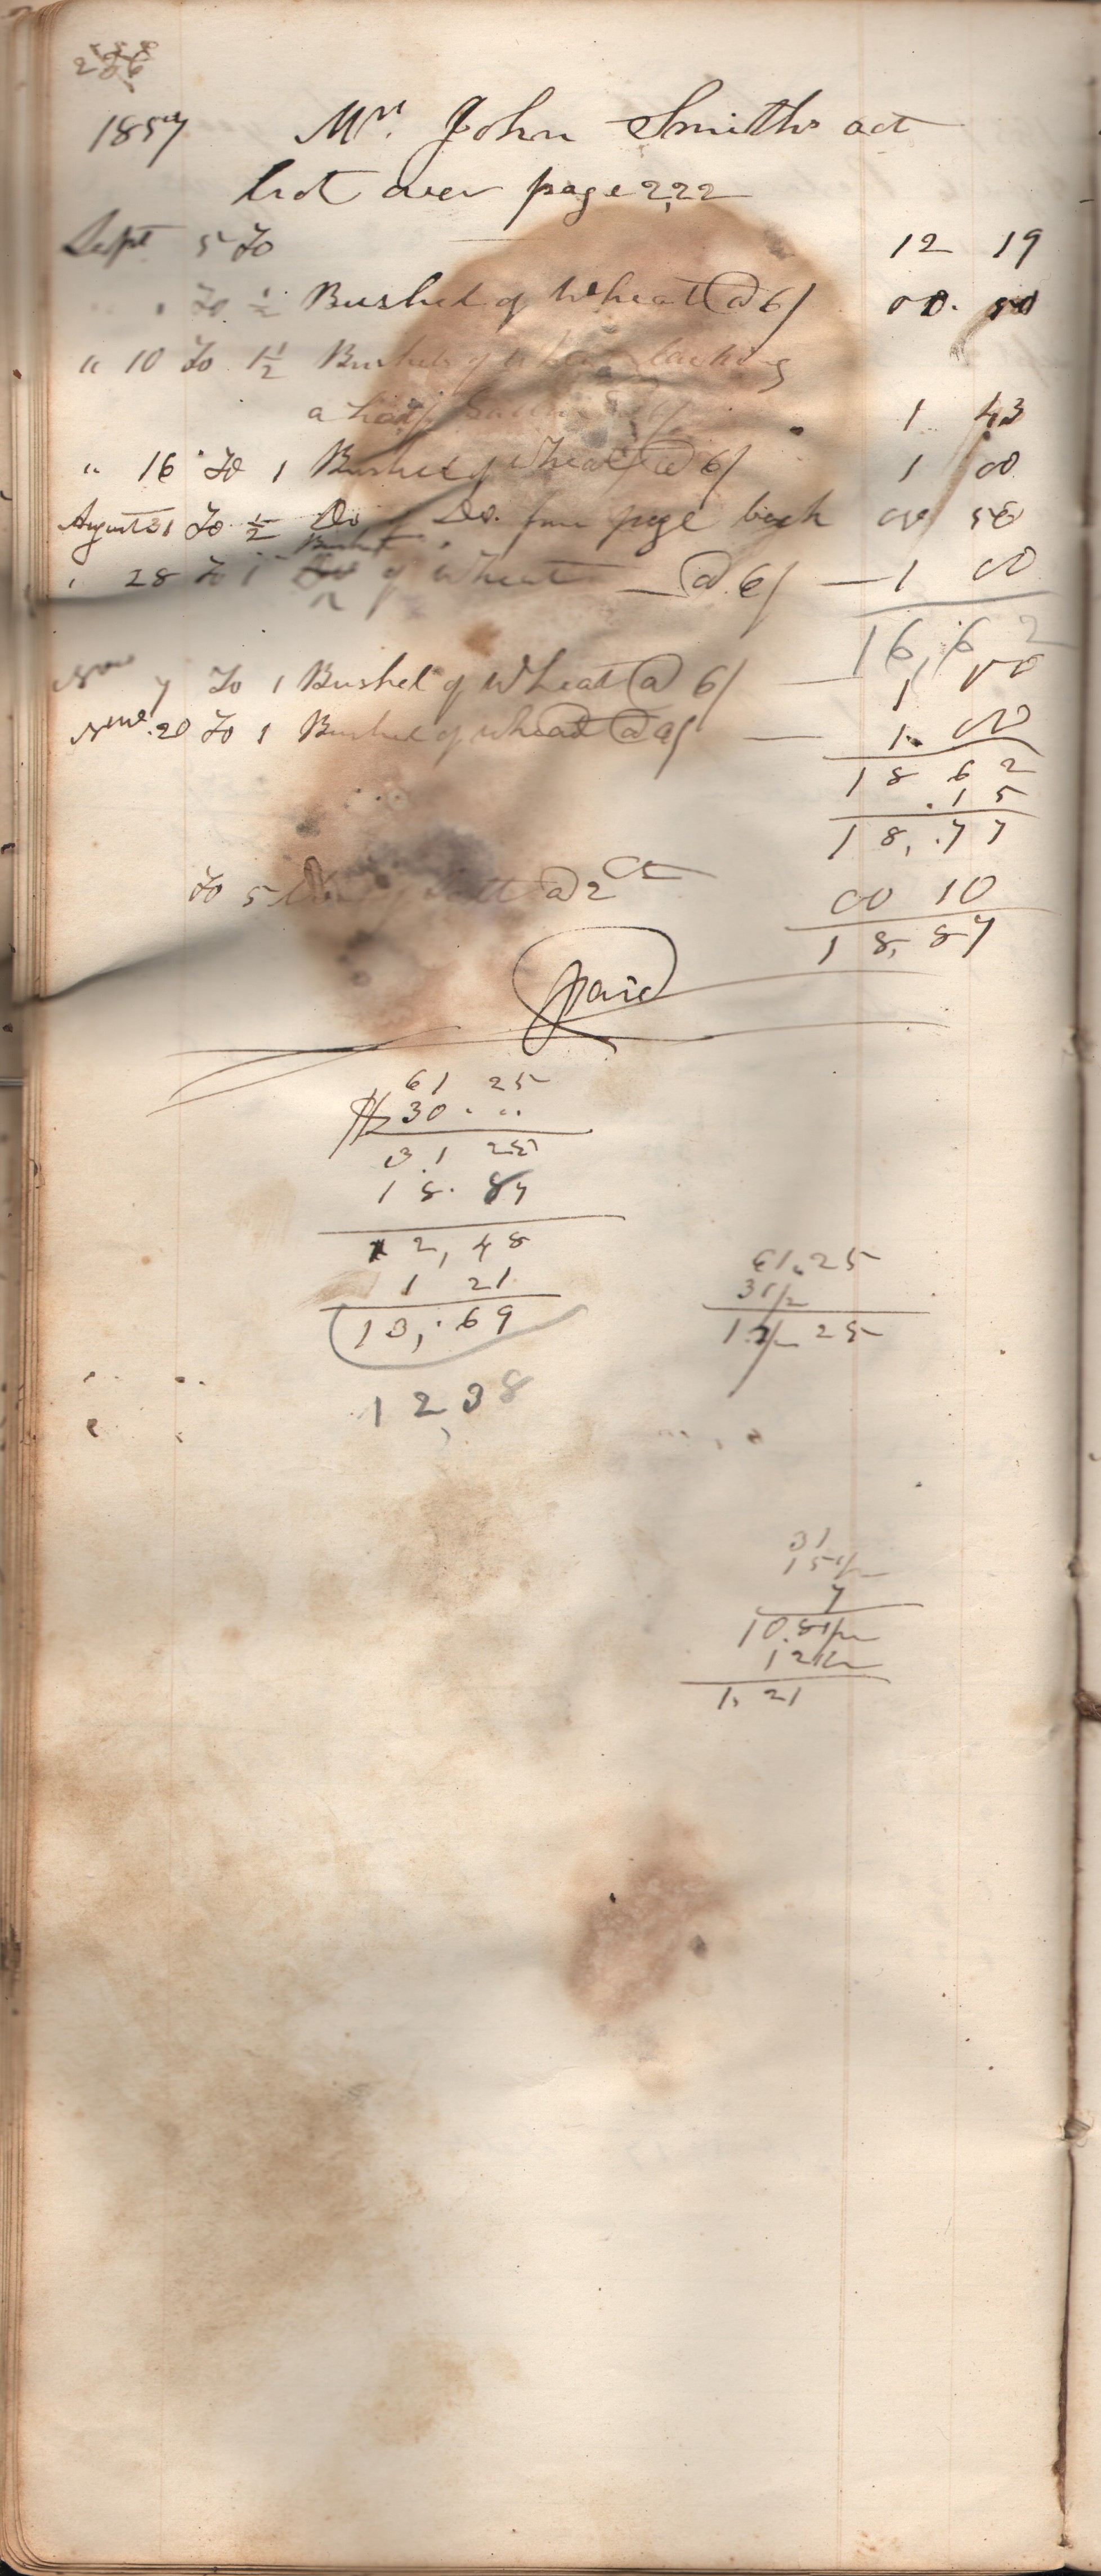 226
1857 Mr. John Smiths act
brot over page 222
Sept 5 To 12 19
" To 1/2 Bushel of Wheat @ 6/ 00. 50
" 10 To 1 1/2 Bushels of Wheat lacking
a half 1 43
" 16 To 1 Bushel of Wheat @ 6/ 1 00
August 31 To 1/2 Do of Do. from page back 00 50
Bushel
" 28 To 1 Do of Wheat @ 6/ — 1 00
16,62
Nov 7 To 1 Bushel of Wheat @ 6/ — 1 00
Nove. 20 To 1 Bushel of wheat @ 6/ — 1. 00
18 62
.15
18,.77
To 5 of Salt @ 2 Ct 00 10
18,87
Paid
61 25
$ 30. ..
31 25
18. 87
12,48
1 21
13,.69
12,38
61,25
31/2
12/ 25
31
15 1/2
7
10.8 1/2
12 1/2
1,21